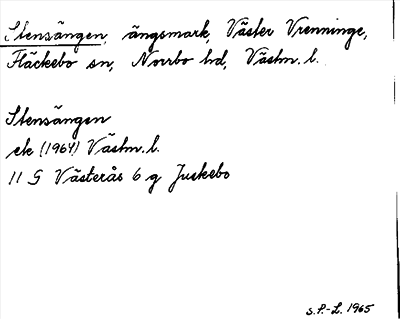 Stensängen, ängsmark, Väster Vrenninge,
Fläckebo sn, Norrbo hd, Västm. l.
Stensängen
ek (1964) Västm. l.
11 G Västerås 6 g Juckebo
S.P.-L. 1965